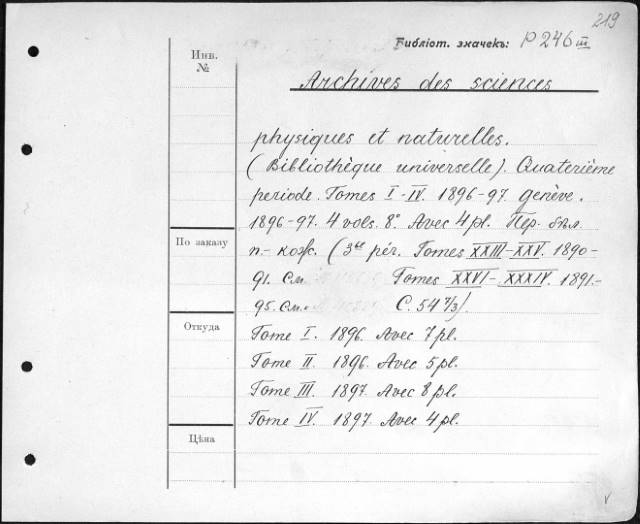 219
Библіот. значекъ: P 246 III
Инв.
№
Archives des sciences
physiques et naturelles.
(Bibliothèque universelle). Quaterième
periode. Tomes I-IV. 1896-97. genève.
1896-97. 4 vols. 8°. Avec 4 pl. Пер. бѣл.
п.- кож. (3me pér. Tomes XXIII-XXV. 1890-
По заказу
91. См. Tomes XXVI-XXXIV. 1891.-
95. См. C. 54 7/3).
Откуда
Tome I. 1896. Avec 7 pl.
Tome II. 1896. Avec 5 pl.
Tome III. 1897. Avec 8 pl.
Tome IV. 1897. Avec 4 pl.
Цѣна
v